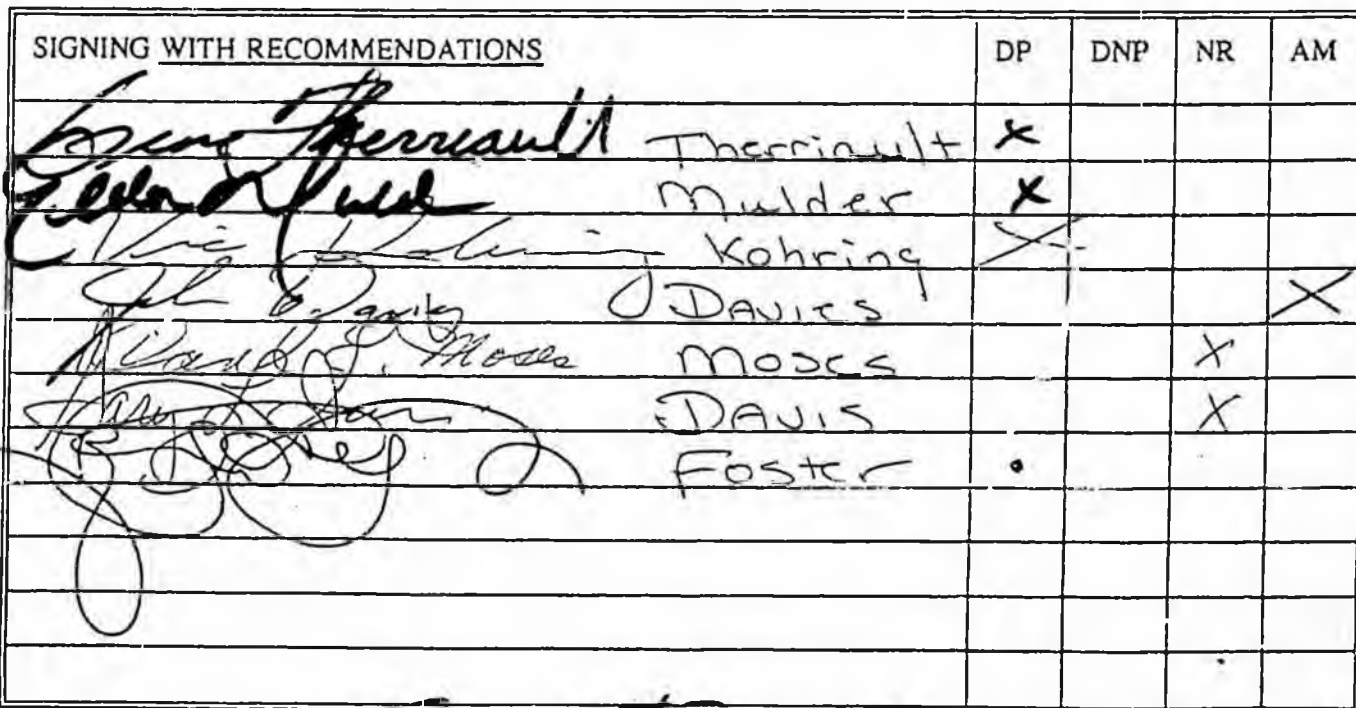 SIGNING WITH RECOMMENDATIONS DP DNP NR AM
Gene Therriault Therriault x
Eldon Mulder Mulder x
Vic Kohring Kohring X
John Davies Davies X
J. Moses Moses X
Gary L Davis Davis X
Foster •